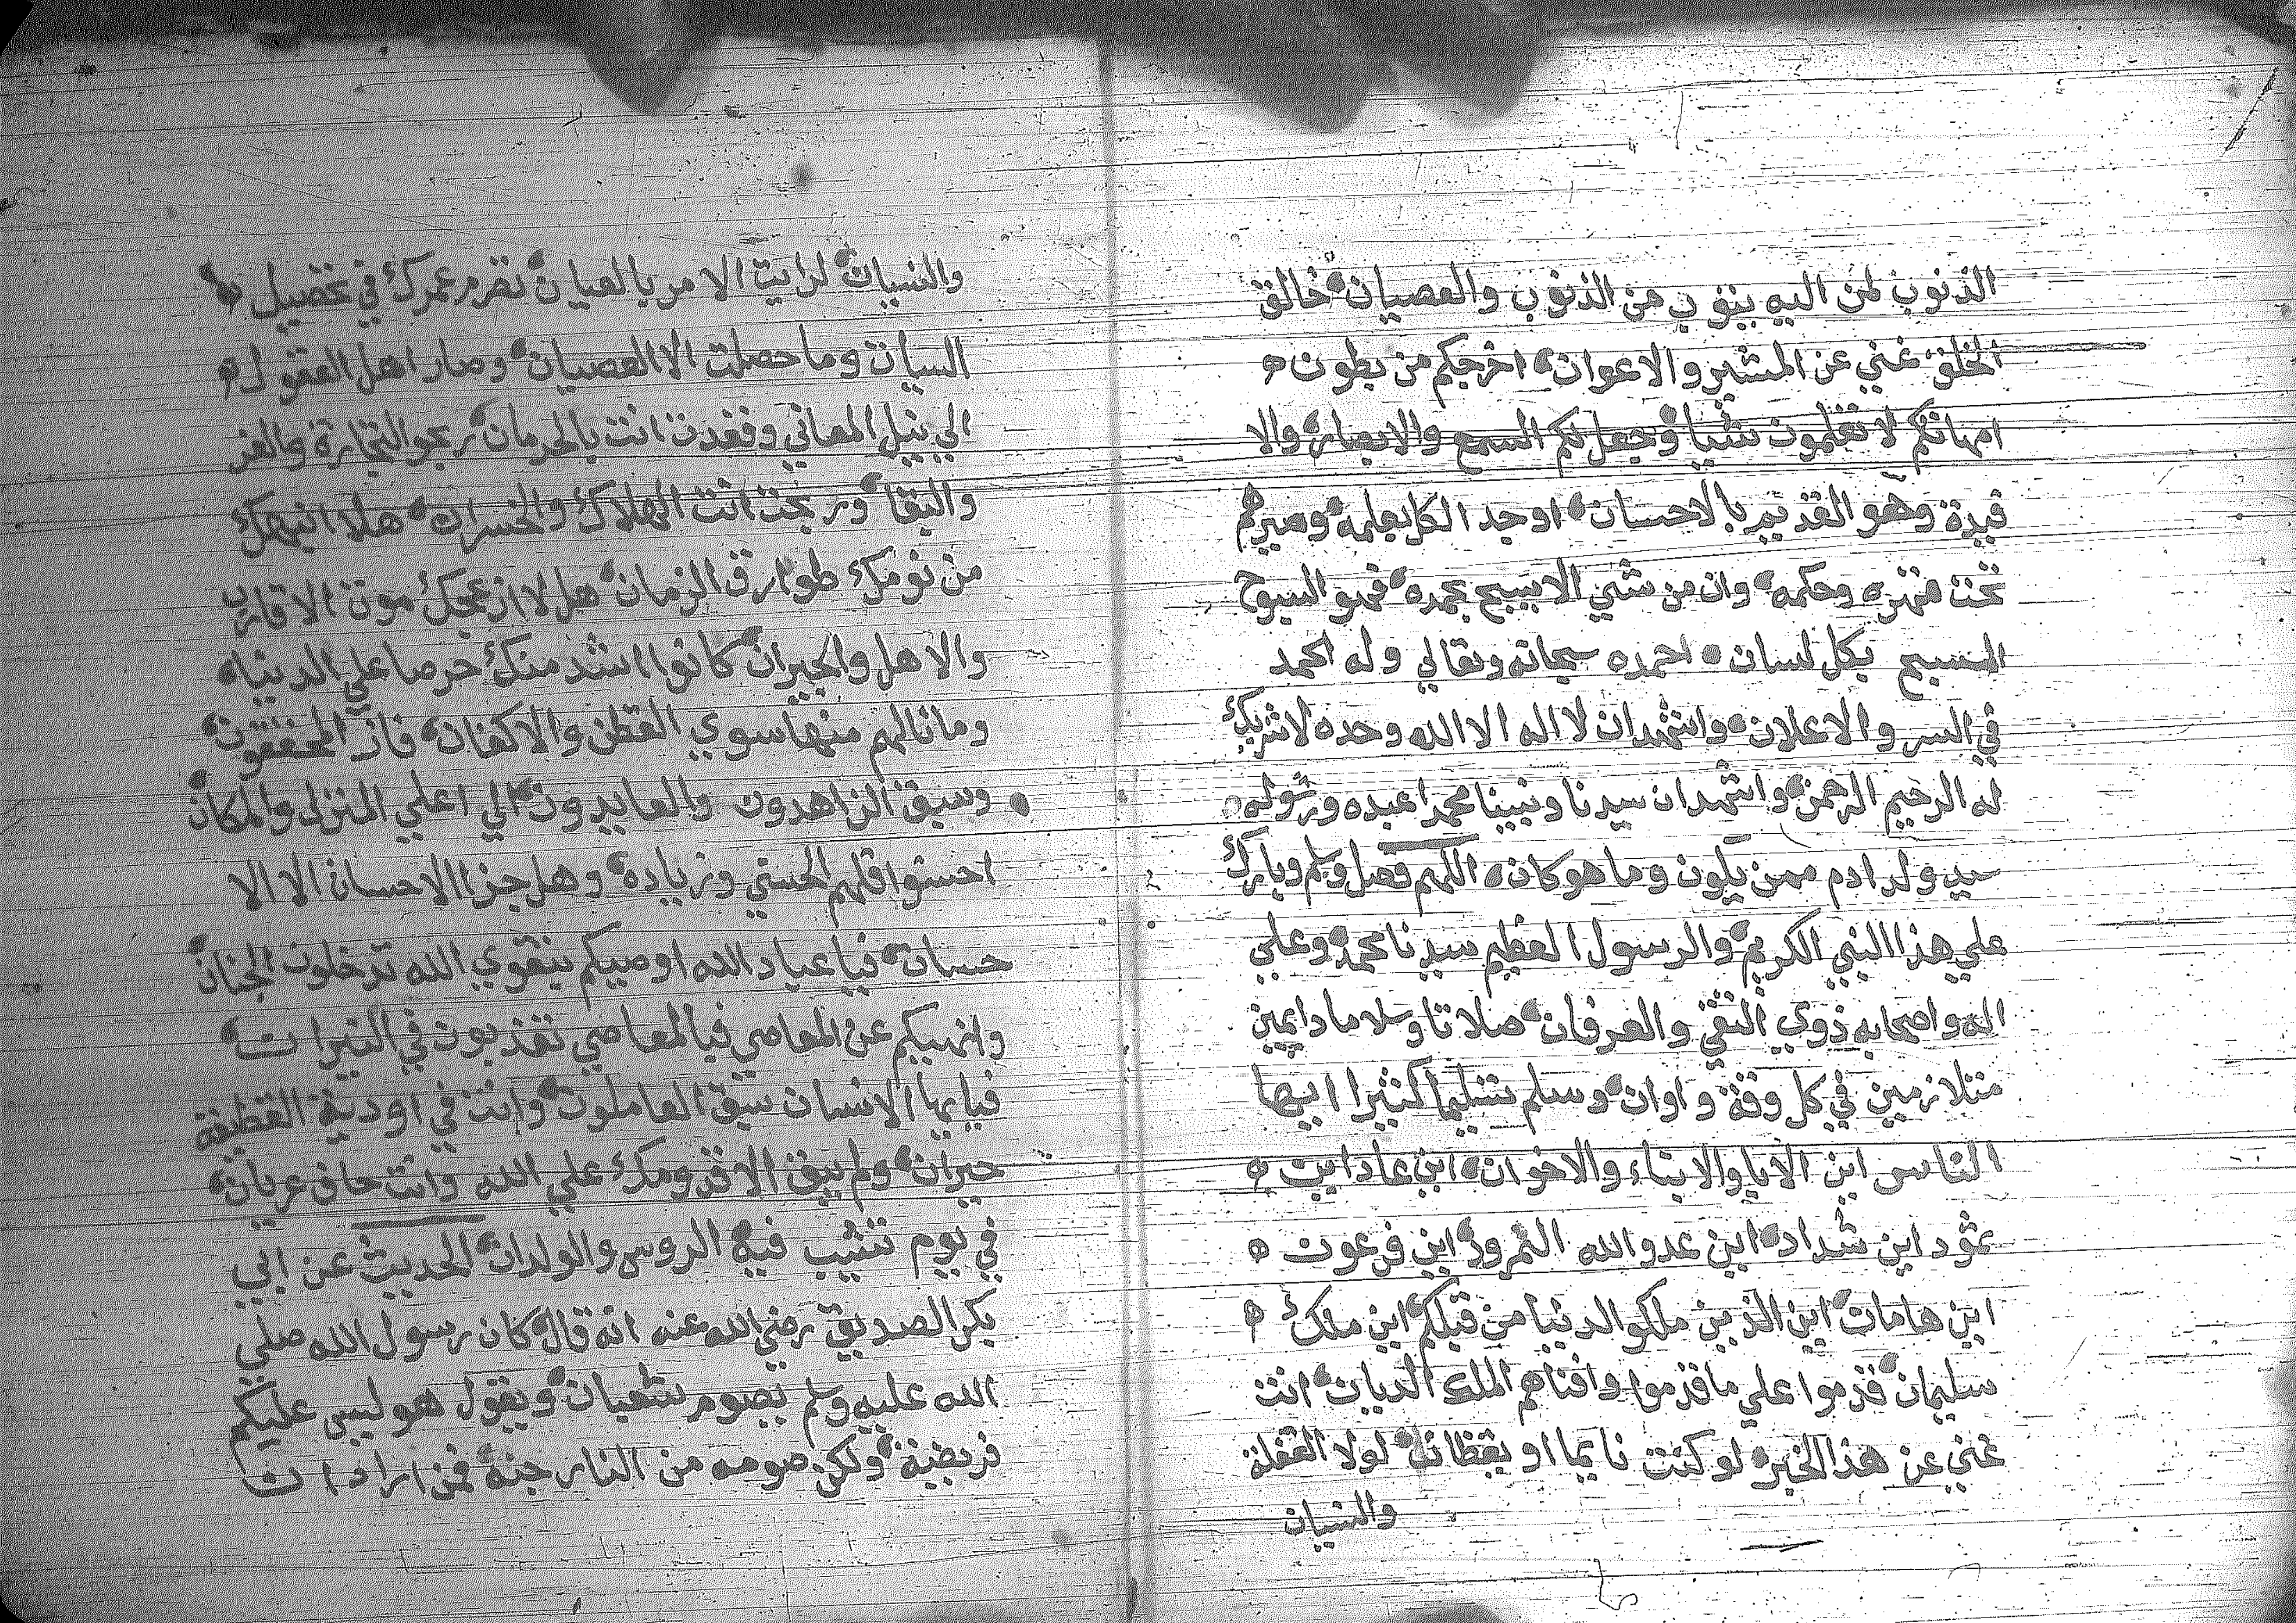 الذنوب لمن اليه يتوب من الذنوب والعصيان خالق
الخلق غني عن المشير والاعوان اخرجكم من بطون
امهاتكم لا تعلمون شيا وجعل لكم السمع والابصار والا
فيدة وهو القديم بالاحسان اوجد الكل بعلمه وصيرهم
تحت قهره وحكمه وان من شي الا يسبح بحمده فهو السبوح
المسبح بكل لسان احمده سبحانه وتعالي وله الحمد
في السر والاعلان واشهد ان لا اله الا الله وحده لا شريك
له الرحيم الرحمن واشهد ان سيدنا ونبينا محمدا عبده ورسوله
سيد ولد ادم ممن يكون وما هو كان اللهم فصل وسلم وبارك
علي هذا النبي الكريم والرسول العظيم سيدنا محمد وعلي
اله واصحابه ذوي التقي والعرفان صلاتا وسلاما دايمين
متلازمين في كل وقة واوان وسلم تسليما كثيرا ايها
الناس اين الابا والابناء والاخوان اين عاد اين
ثمود اين شداد اين عدو الله النمرود اين فرعون
اين هامان اين الذين ملكو الدنيا من قبلكم اين ملك
سليمان قدموا علي ما قدموا وافناهم الملك الديان انت
غني عن هذا الخبر لو كنت نايما او يقظان لولا الغفلة
والنسيان
والنسيان لرايت الامر بالعيان تصرم عمرك في تحصيل
السيات وما حصلت الا العصيان وصار اهل العقول
الي نيل المعاني وقعدت انت بالحرمان ربحو التجارة والعز
والبقا وربحت انت الهلاك والخسران هلا انبهك
من نومك طوارق الزمان هل لا ازعجك موت الاقارب
والاهل والجيران كانوا اشد منك حرصا علي الدنيا
وما نالهم منها سوي القطن والاكفان فاز المخففون
وسبق الزاهدون والعابدون الي اعلي المنزل والمكان
احسنوا فلهم الحسني وزياده وهل جزا الاحسان الا الا
حسان فيا عباد الله اوصيكم بتقوي الله تدخلون الجنان
وانهيكم عن المعاصي فبالمعاصي تعذبون في النيران
فيايها الانسان سبق العاملون وانت في اودية القطيعة
حيران ولم يبق الا قدومك علي الله وانت حاف عريان
في يوم تشيب فيه الروس والولدان الحديث عن ابي
بكر الصديق رضي الله عنه انه قال كان رسول الله صلي
الله عليه وسلم يصوم شعبان ويقول هو ليس عليكم
فريضة ولكن صومه من النار جنة فمن اراد ان